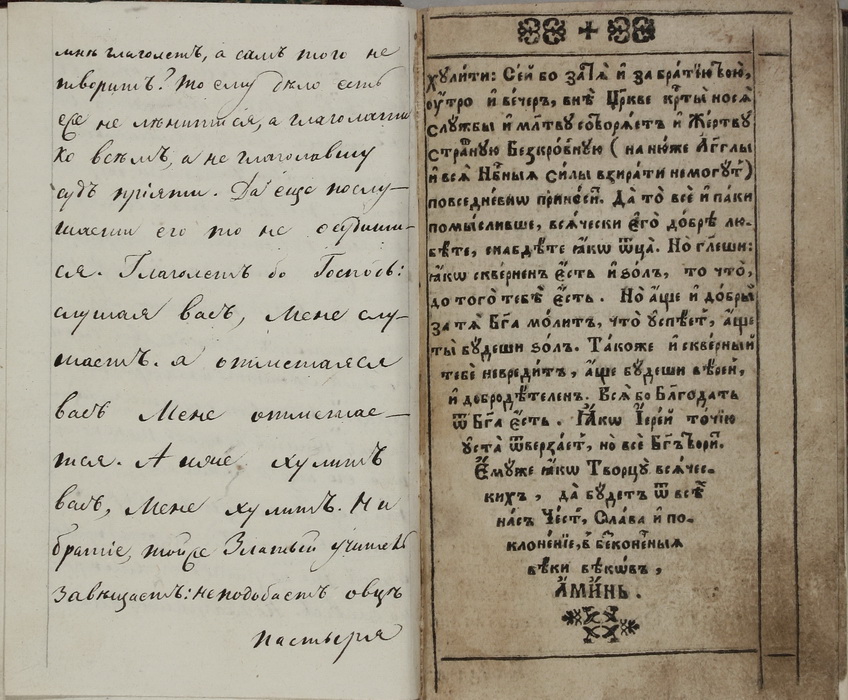 мнѣ глаголетъ, а самъ того не
творитъ? то ему дѣло есть
еже не лѣнитися, а глаголати
ко всѣмъ, а не глаголавшу
судъ прїяти. Да еще послу-
шаеши его то не осудиши-
ся. Глаголетъ бо Господь:
слушая васъ, Мене слу-
шаетъ. а отметаяся
васъ Мене отметае-
тся. А иже хулитъ
васъ, Мене хулитъ. Но
братіе, тойже Златый учитель
завѣщаетъ: неподобаетъ овцѣ
пастыря
хѹли́ти: Се́й бо за Тѧ̀ и҆ за бра́тїю Твою̀,
оу҆́тро и҆ ве́черъ, внѣ̀ Цр҃кве кр҃ты̀ носѧ̀
слꙋ́жбы и҆ мл҃твꙋ сотворѧ́етъ и҆ Же́ртвꙋ
Стра́шнꙋю Безкро́внꙋю ( на ню́же А҆́гг҃лы
и҆ всѧ̀ Нб҃ныѧ си́лы взира́ти немогꙋ́тъ )
повседне́внѡ прино́ситъ. Да̀ то̀ всѐ и҆ па́ки
помы́сливше, всѧ́чески є҆го̀ до́брѣ лю-
би́те, снабдѣ́те ꙗ҆́кѡ ѻ҆ц҃а̀. Но̀ гл҃еши:
ꙗ҆́кѡ скве́рненъ є҆́сть и҆ ѕо́лъ, то что̀,
до того̀ тебѣ̀ є҆́сть. Но̀ а҆́ще и҆ до́брый
за тѧ̀ Бг҃а мо́литъ, что̀ оу҆спѣ́етъ, а҆́ще
ты̀ бꙋ́деши ѕо́лъ. Та́коже и҆ скве́рный
тебѐ невреди́тъ, а҆́ще бꙋ́деши вѣ́рен,
и҆ добродѣ́теленъ. Всѧ̀ бо Бл҃года́ть
ѿ Бг҃а є҆́сть. Ꙗ҆́кѡ І҆ере́й то́чїю
оу҆ста̀ ѿверза́етъ, но̀ всѐ Бг҃ъ твори́тъ.
Є҆мꙋ́же ꙗ҆́кѡ Творцꙋ̀ всѧ́чес-
кихъ, да̀ бꙋ́детъ ѿ всѣ́хъ
на́съ Че́сть, Сла́ва и҆ по-
клоне́нїе, в̾ безконе́чныѧ
вѣ́ки вѣкѡ́въ,
А҆МИ́НЬ.